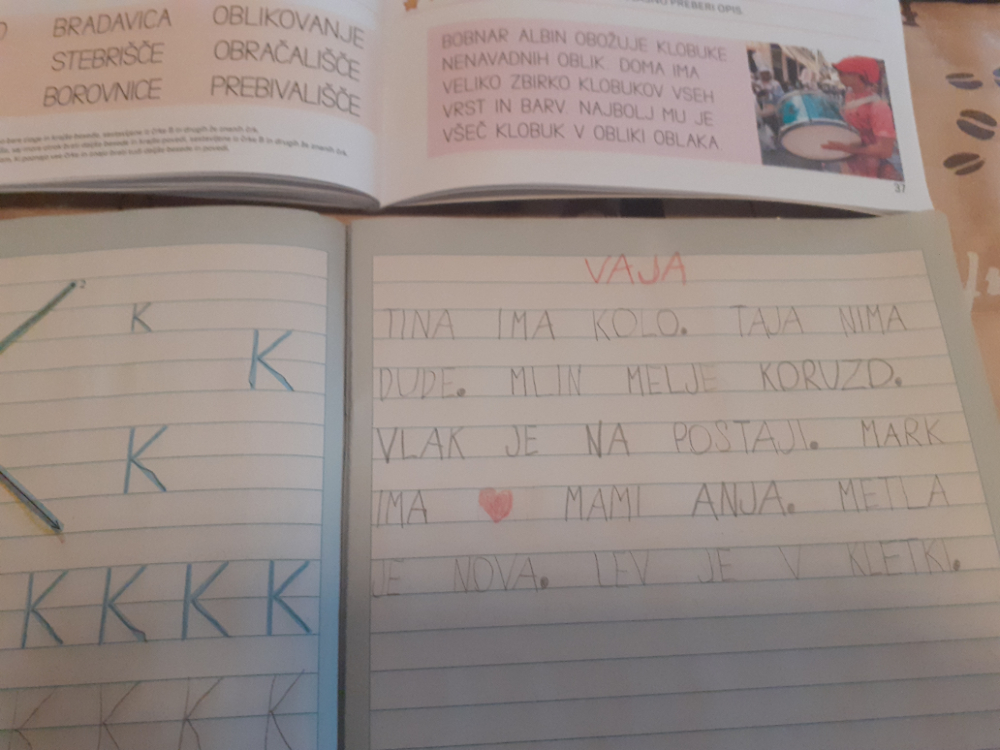 BRADAVICA OBLIKOVANJE
STEBRIŠČE OBRAČALIŠČE
BOROVNICE PREBIVALIŠČE
PREBERI OPIS.
BOBNAR ALBIN OBOŽUJE KLOBUKE
NENAVADNIH OBLIK. DOMA IMA
VELIKO ZBIRKO KLOBUKOV VSEH
VRST IN BARV. NAJBOLJ MU JE
VŠEČ KLOBUK V OBLIKI OBLAKA.
37
2
K
K
K
K K K K
K K K K
VAJA
TINA IMA KOLO. TAJA NIMA
DUDE. MLIN MELJE KORUZO.
VLAK JE NA POSTAJI. MARK
IMA ❤ MAMI ANJA. METLA
JE NOVA. LEV JE V KLETKI.